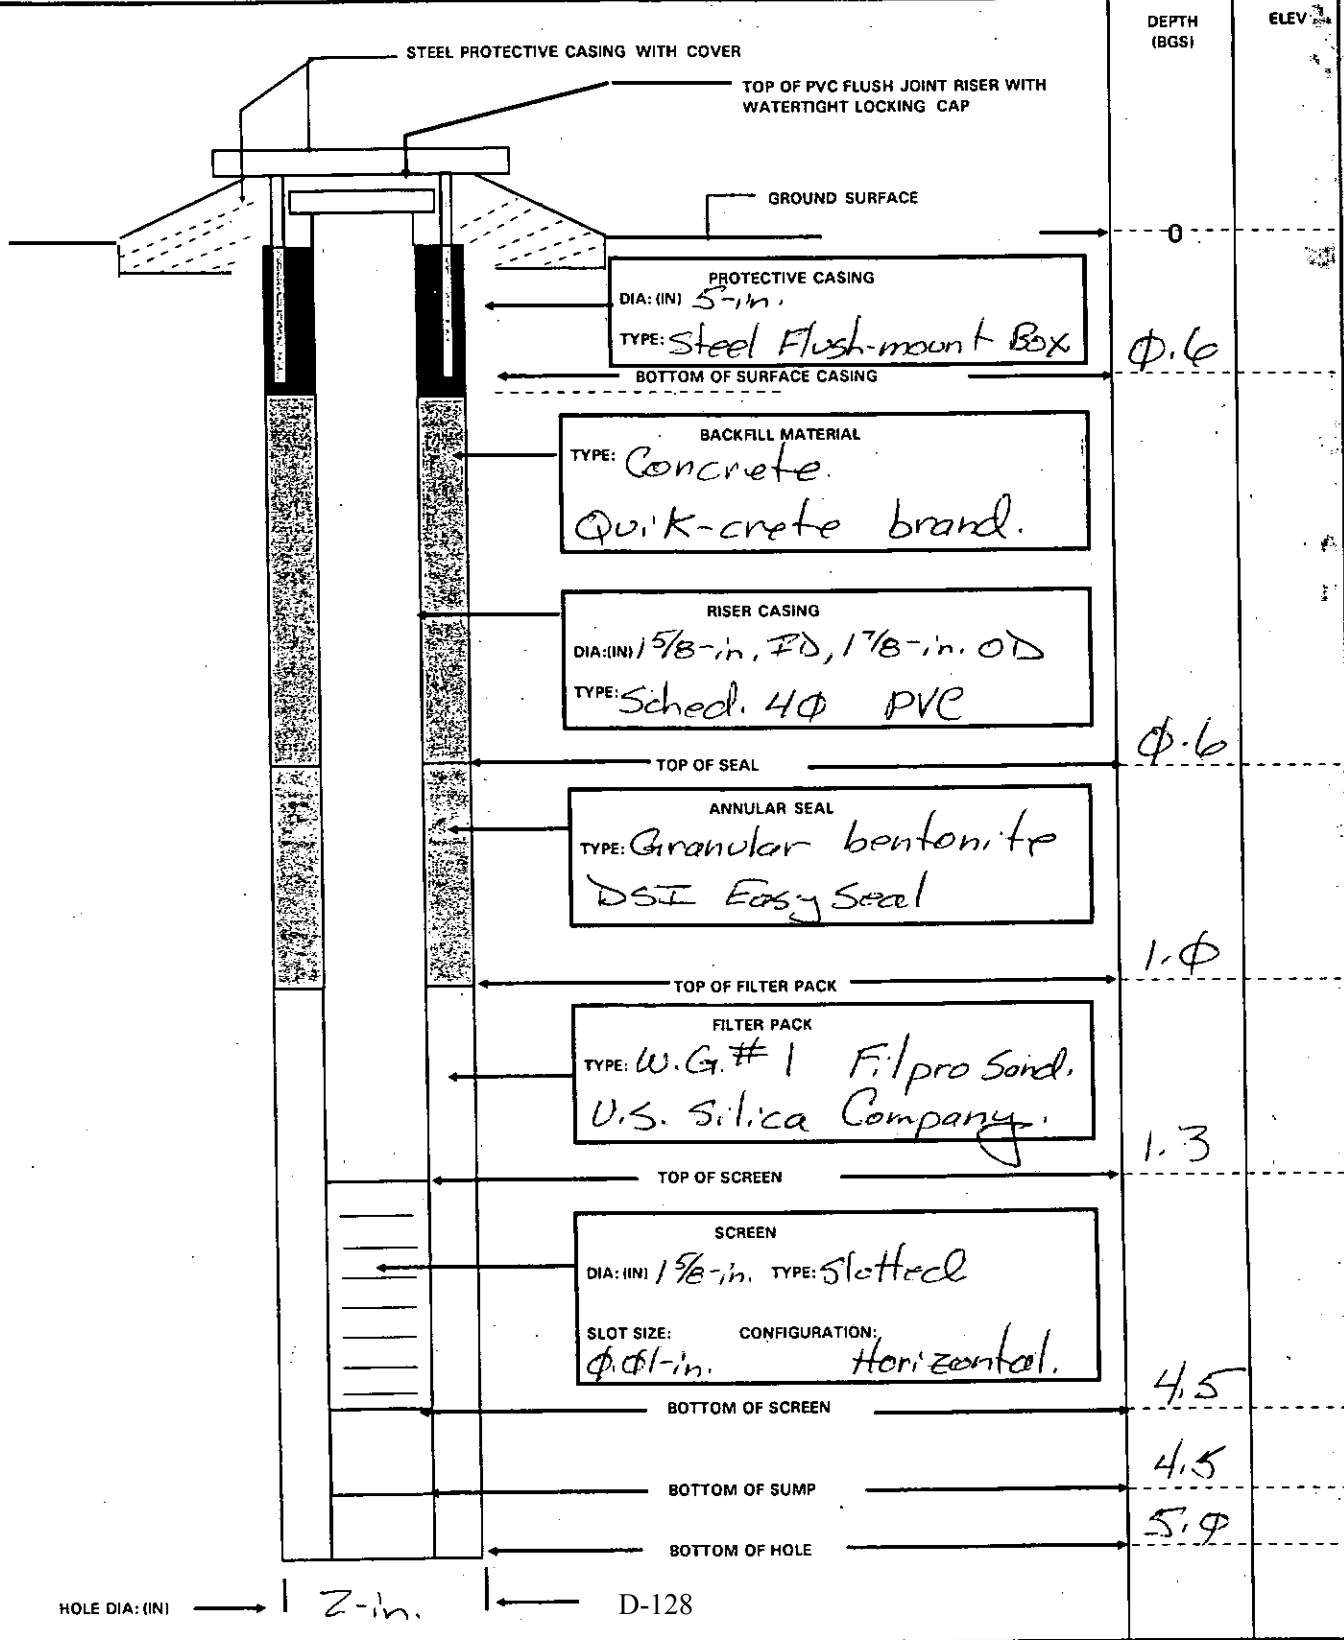 DEPTH
(BGS)
ELEV
STEEL PROTECTIVE CASING WITH COVER
TOP OF PVC FLUSH JOINT RISER WITH
WATERTIGHT LOCKING CAP
GROUND SURFACE
0
PROTECTIVE CASING
DIA: (IN) 5-in.
TYPE: Steel Flush-mount Box
0.6
BOTTOM OF SURFACE CASING
BACKFILL MATERIAL
TYPE: Concrete.
Quik-crete brand.
RISER CASING
DIA:(IN) 1 5/8-in, ID, 1 7/8-in. OD
TYPE: Sched. 40 PVC
0.6
TOP OF SEAL
ANNULAR SEAL
TYPE: Granular bentonite
DSI Easy Seal
1.0
TOP OF FILTER PACK
FILTER PACK
TYPE: W.G. # 1 Filpro Sand.
U.S. Silica Company.
1.3
TOP OF SCREEN
SCREEN
DIA: (IN) 1 5/8-in. TYPE: Slotted
SLOT SIZE: CONFIGURATION:
0.01-in. Horizontal.
4.5
BOTTOM OF SCREEN
4.5
BOTTOM OF SUMP
5.0
BOTTOM OF HOLE
HOLE DIA: (IN) 2-in. D-128